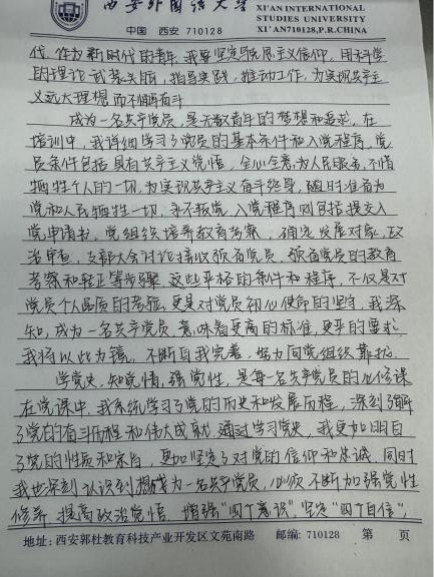 西安外国语大学
XI'AN INTERNATIONAL
STUDIES UNIVERSITY
中国 西安 710128
XI'AN710128,P.R.CHINA
代，作为新时代的青年，我要坚定马克思主义信仰，用科学
的理论武装头脑，指导实践，推动工作，为实现共产主
义远大理想而不懈奋斗
成为一名共产党员，是无数青年的梦想和追求，在
培训中，我详细学习了党员的基本条件和入党程序，党
员条件包括具有共产主义觉悟，全心全意为人民服务，不惜
牺牲个人的一切，为实现共产主义奋斗终身，随时准备为
党和人民牺牲一切，永不叛党，入党程序则包括提交入
党申请书，党组织培养教育考察，确定发展对象，政
治审查，支部大会讨论接收预备党员，预备党员的教育
考察和转正等步骤，这些严格的条件和程序，不仅是对
党员个人品质的考验，更是对党员初心使命的坚持，我深
知，成为一名共产党员，意味着更高的标准，更严的要求，
我将以此为镜，不断自我完善，努力向党组织靠拢。
学党史，知党情，强党性，是每一名共产党员的必修课
在党课中，我系统学习了党的历史和发展历程，深刻了解
了党的奋斗历程和伟大成就，通过学习党史，我更加明白
了党的性质和宗旨，更加坚定了对党的信仰和忠诚，同时
我也深刻认识到想成为一名共产党员，必须不断加强党性
修养，提高政治觉悟，增强"四个意识"，坚定"四个自信"，
地址：西安郭杜教育科技产业开发区文苑南路 邮编：710128 第 页